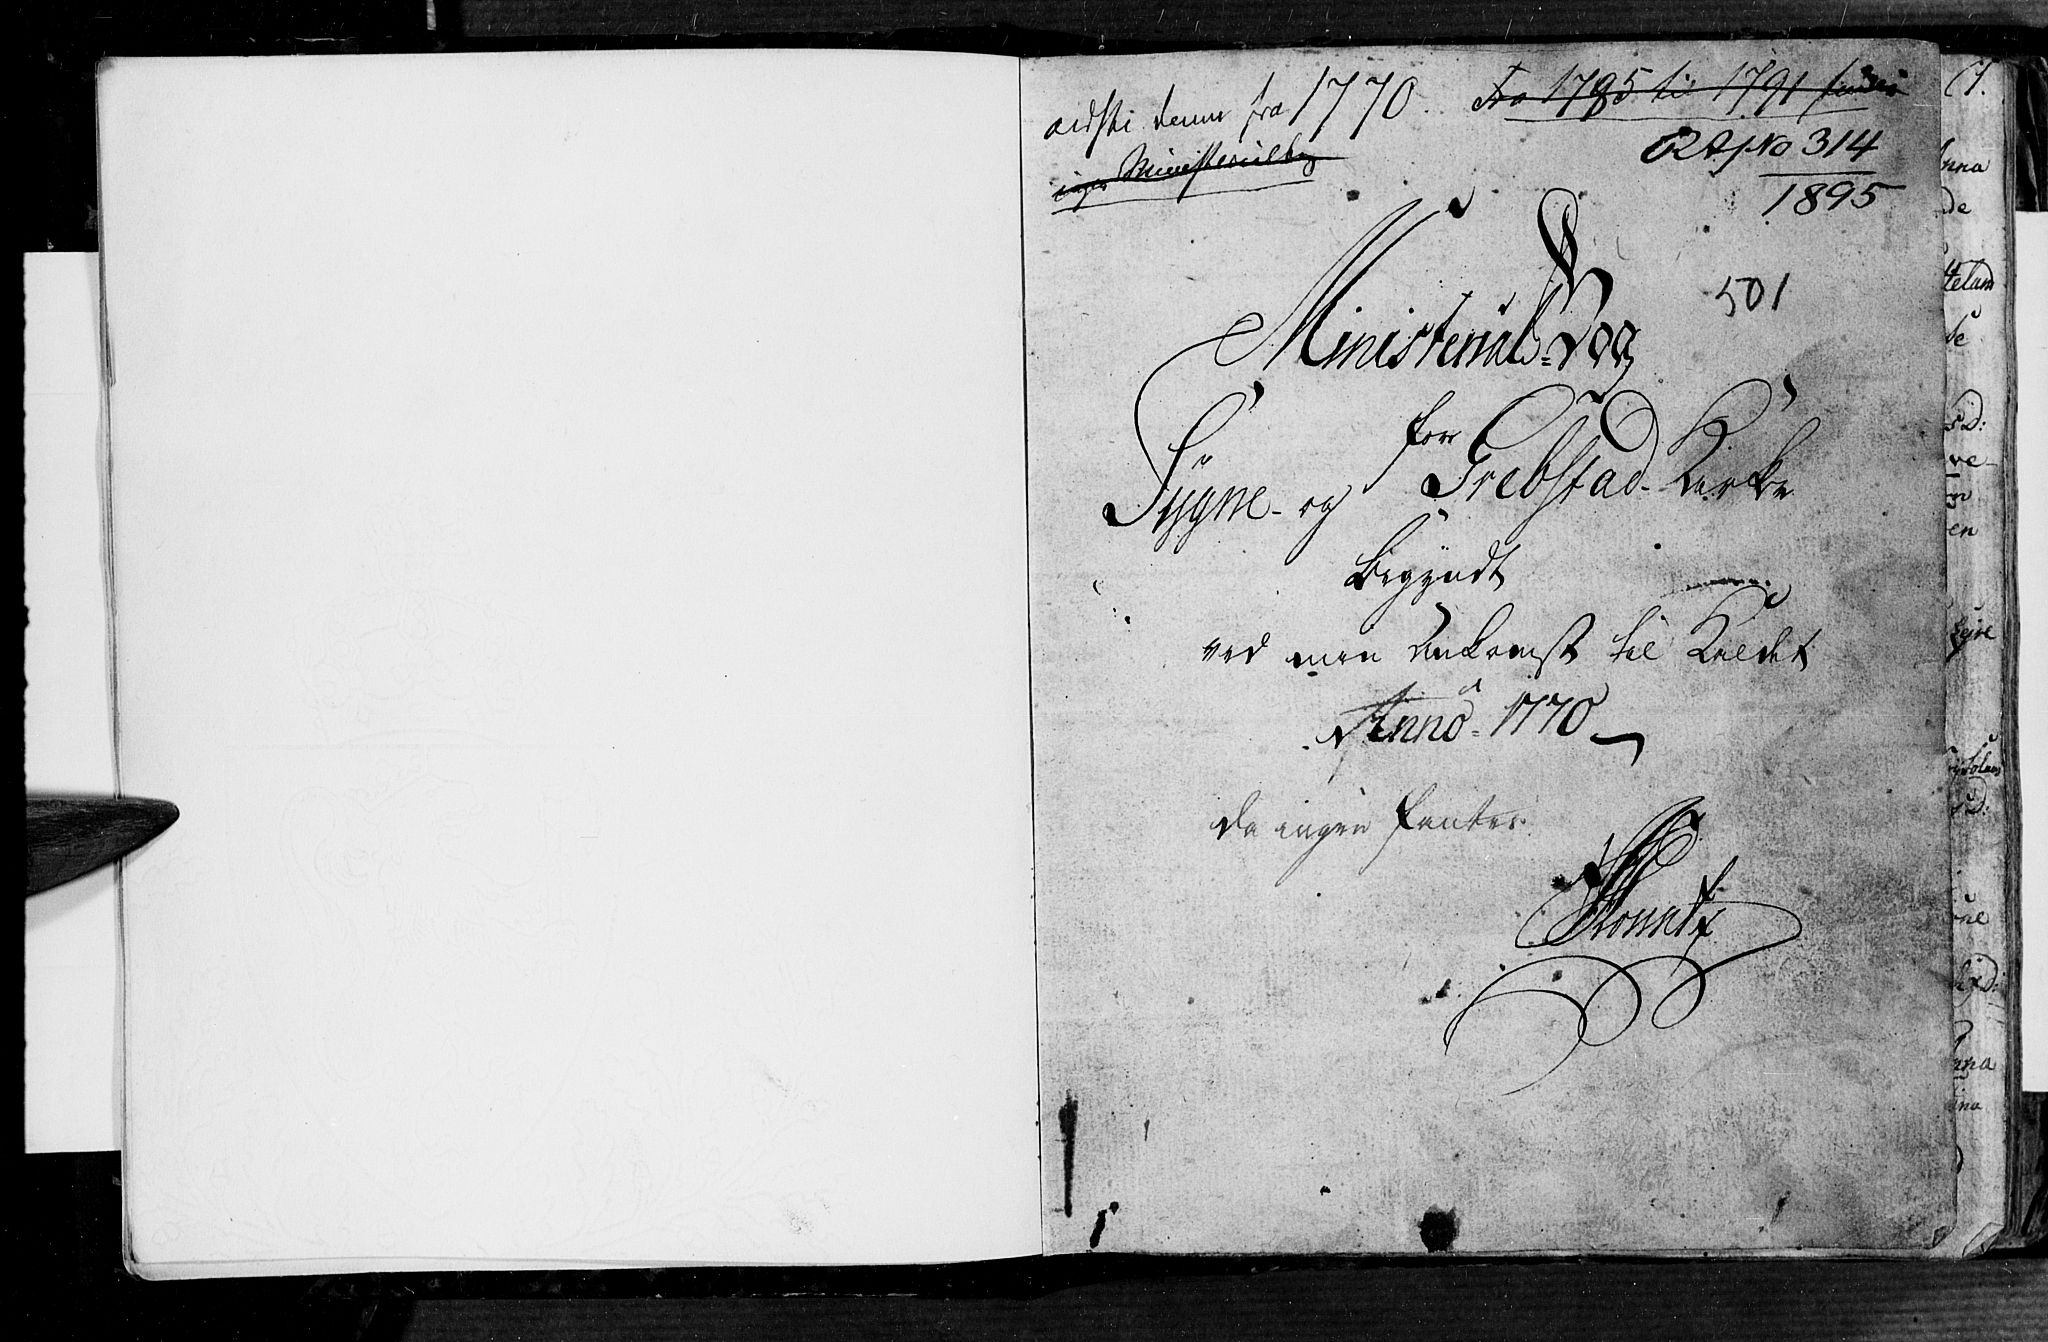 ældste denne fra 1770.
Fra 1785 til 1791 findes
ingen Ministerialbog
RA J No 314
1895
501
Ministerial-Bog
for
Sygne- og Grebstad Kirke
begyndt
ved min Ankomst til Kaldet
Anno 1770
da ingen fantes.